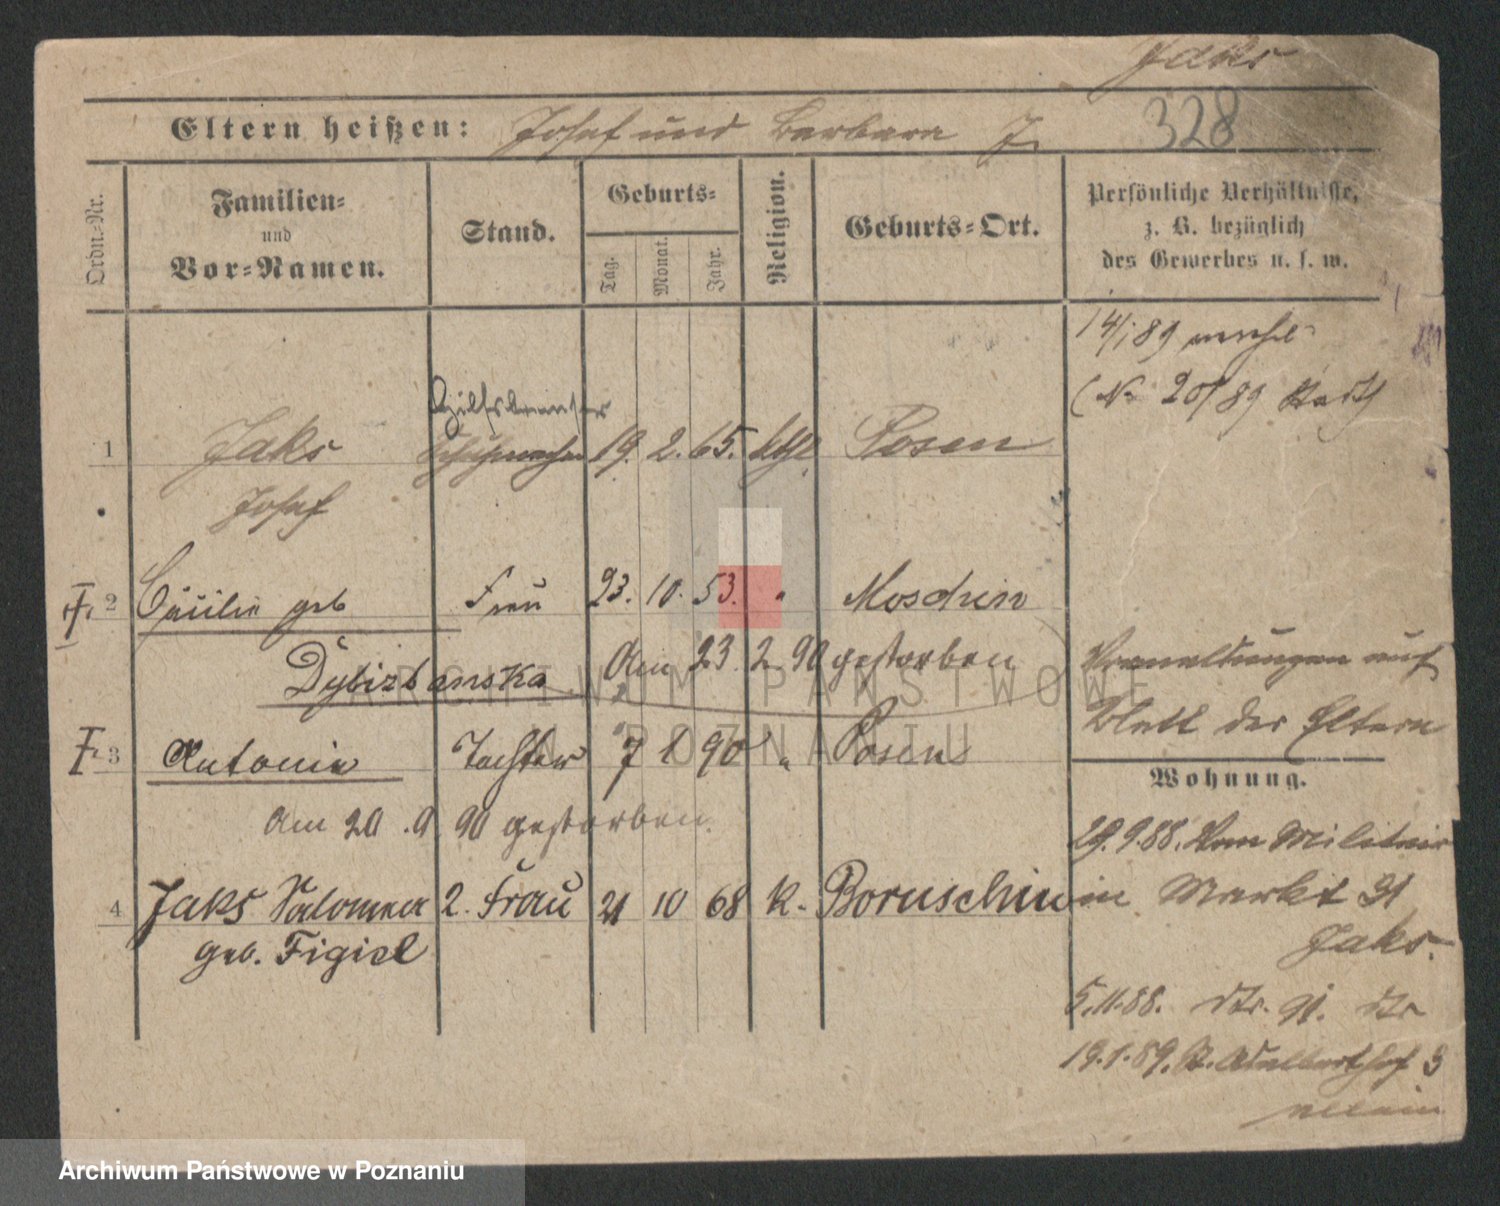 Jaks
Eltern heißen: Josef und Barbara J.
328
Ordn.-Nr.
Familien-
und
Vor-Namen.
Stand.
Geburts-
Tag.
Monat.
Jahr.
Religion.
Geburts-Ort.
Persönliche Verhältnisse,
z. B. bezüglich
des Gewerbes u. s. w.
14/1 89 verehel
(No 20/89 Stadt)
Hilfsbremser
1 Jaks Schuhmacher 19. 2. 65. kthl. Posen
Josef
2 Cäcilie geb Frau 23. 10. 53. " Moschin
Dybizbanska Am 23 2 90 gestorben
auf
Blatt der Eltern
3 Antonie Tochter 7 1 90 " Posen
Wohnung.
Am 20. 9. 90 gestorben.
29. 9. 88. Vom Militair
4 Jaks Salomea 2. Frau 21 10 68 k. Boruschin
in Markt 91
geb. Figiel
Jaks.
5. 11. 88. 91.
19. 1. 89. St. Adalberthof 3
allein
ARCHIWUM PAŃSTWOWE
W POZNANIU
Archiwum Państwowe w Poznaniu